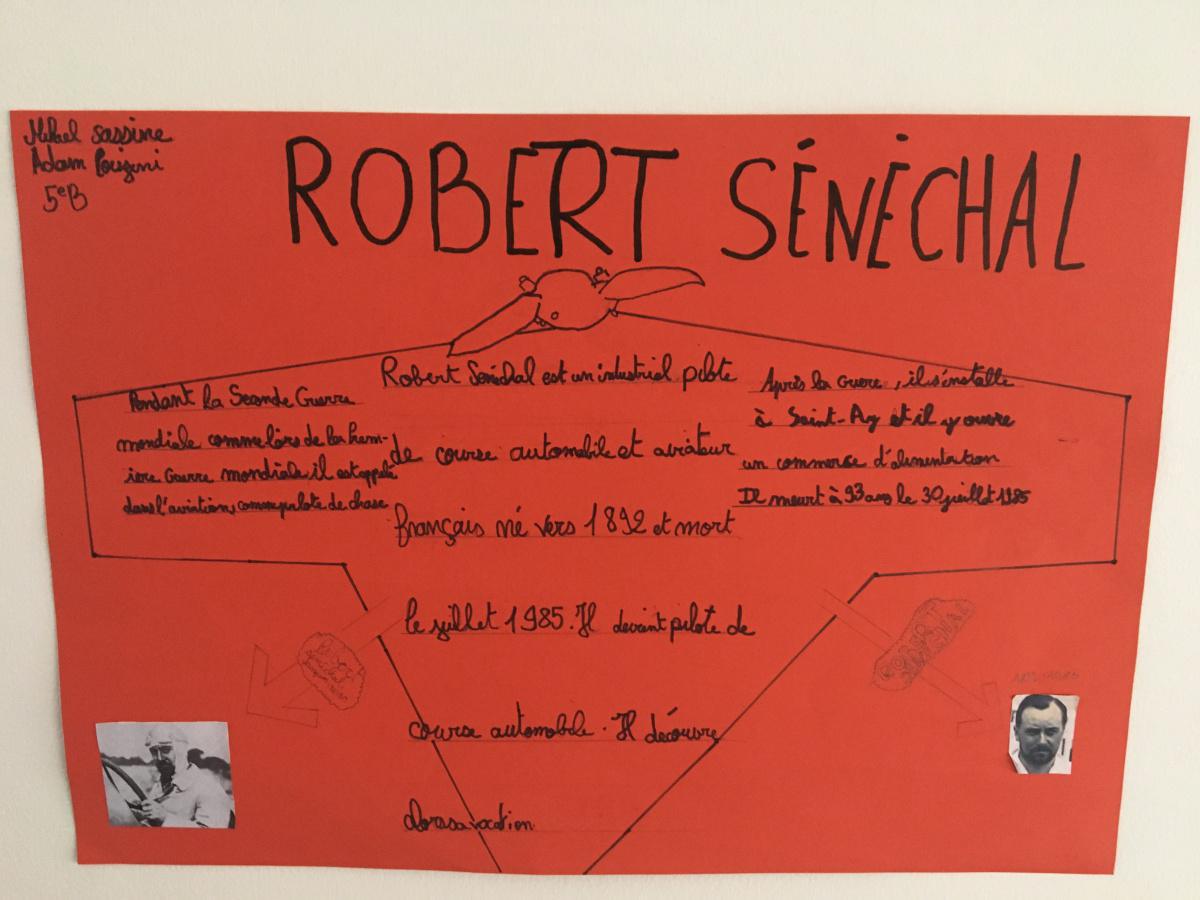 Mikael Sassine
Adam
5eB
ROBERT SÉNÉCHAL
Pendant la Seconde Guerre
mondiale comme lors de la Prem-
ière Guerre mondiale il est appelé
dans l'aviation, comme pilote de chase
Robert Sénéchal est un industriel pilote
de course automobile et aviateur
français né vers 1892 et mort
le juillet 1985. Il devient pilote de
course automobile. Il découvre
alors sa vocation
Après la Guerre, il s'installe
à Saint-Ay et il y ouvre
un commerce d'alimentation
Il meurt à 93 ans le 30 juillet 1985
ROBERT
SÉNÉCHAL